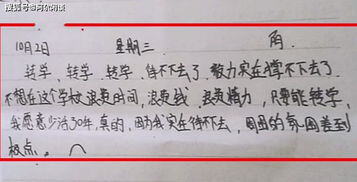 搜狐号@阿尔阅读
10月2日 星期三 雨
转学、转学、转学、待不下去了、毅力实在撑不下去了
不想在这个学校浪费时间,浪费钱,浪费精力,只要能转学,
我愿意少活30年,真的,因为我实在待不下去,周围的氛围差到
极点。